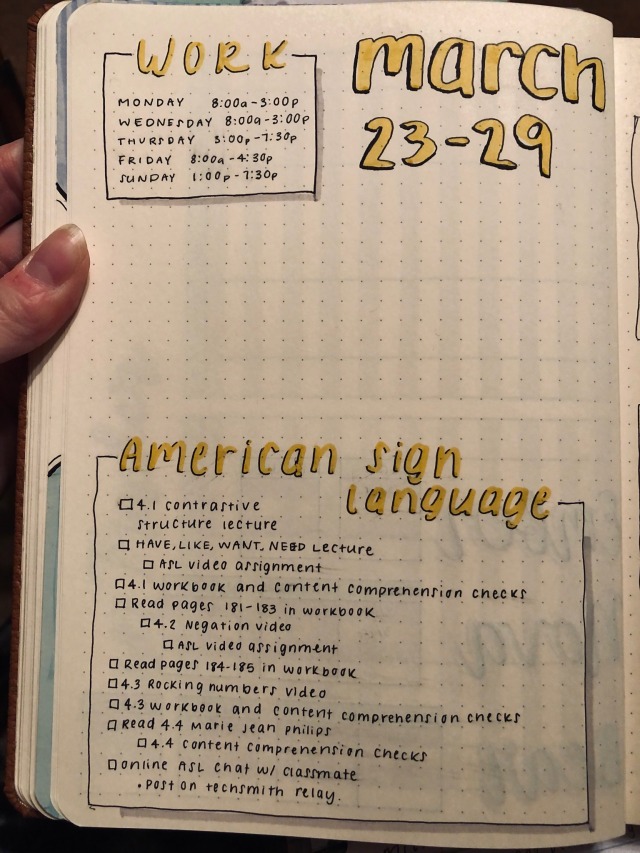 WORK
MONDAY 8:00a-3:00p
WEDNESDAY 8:00a-3:00p
THURSDAY 3:00p-7:30p
FRIDAY 8:00a-4:30p
SUNDAY 1:00p-7:30p
march
23-29
American sign
language
4.1 contrastive
structure lecture
HAVE, LIKE, WANT, NEED Lecture
ASL video assignment
4.1 workbook and content comprehension checks
Read pages 181-183 in workbook
4.2 Negation video
ASL video assignment
Read pages 184-185 in workbook
4.3 Rocking numbers video
4.3 workbook and content comprehension checks
Read 4.4 Marie Jean Philips
4.4 content comprehension checks
online ASL chat w/ classmate
• Post on techsmith relay.